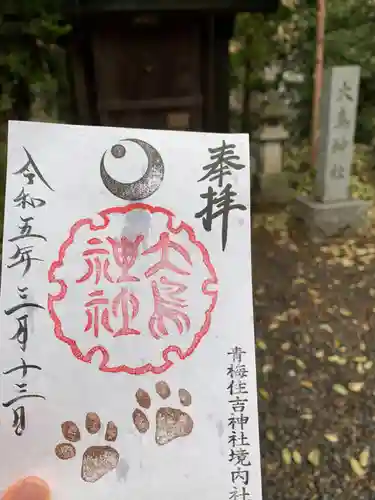 奉拝
大鳥
神社
令和五年三月十三日
青梅住吉神社境内社
大鳥神社